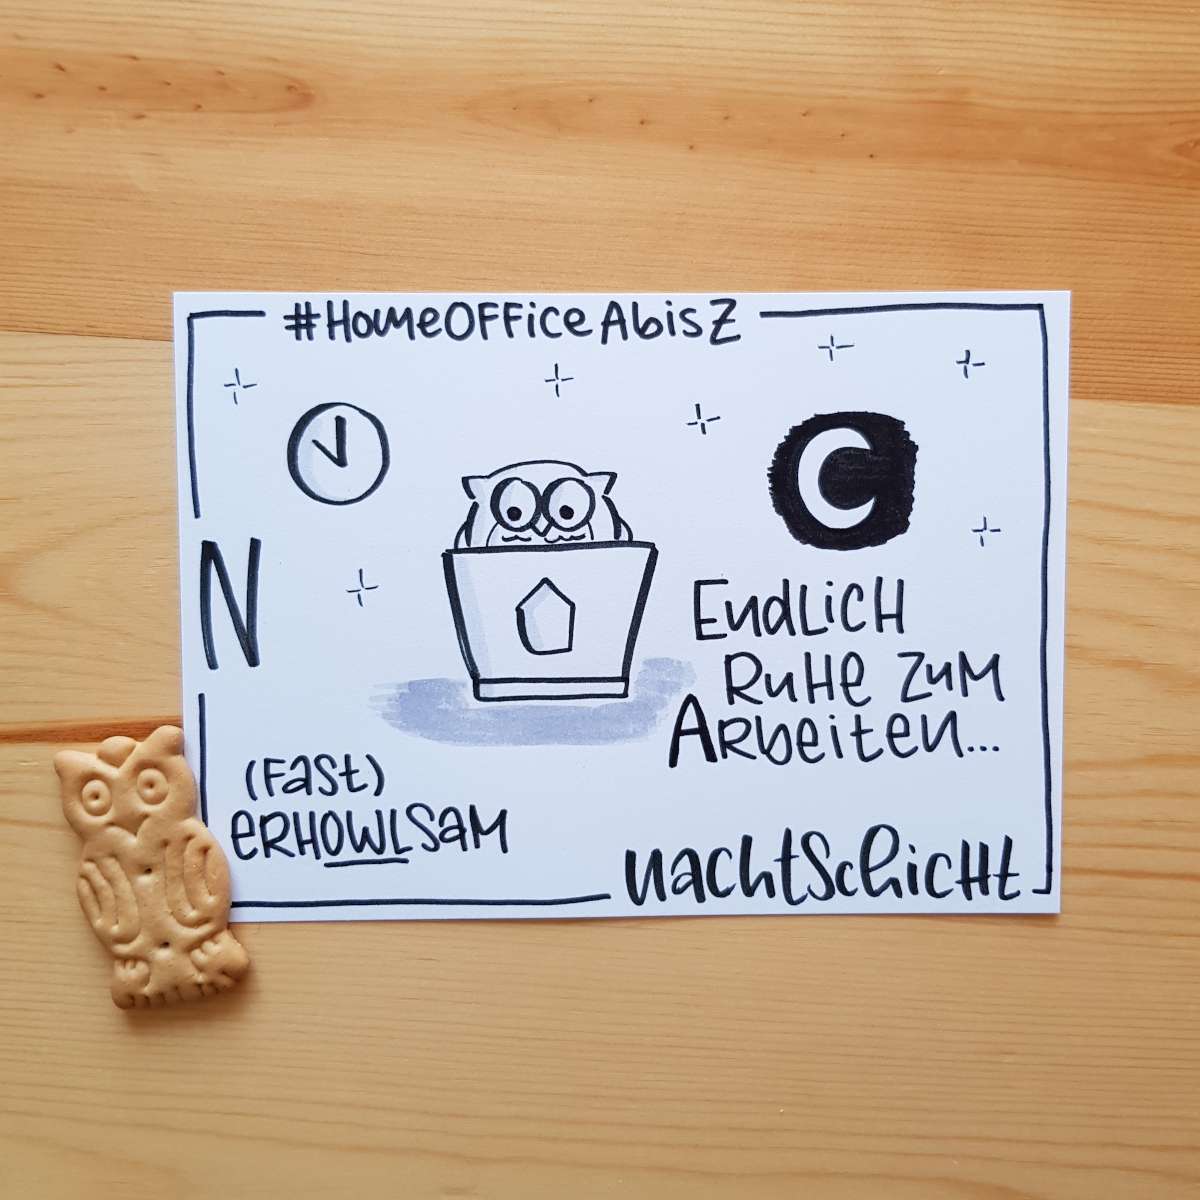 #HomeOfficeAbisZ
N
Endlich
Ruhe zum
Arbeiten...
(Fast)
erhowlsam
Nachtschicht